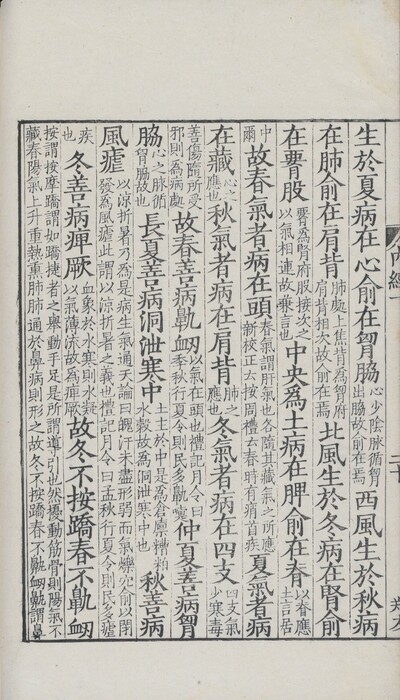 生於夏病在心俞在胷脇心少陰脉循胷出脇故俞在焉西風生於秋病
在肺俞在肩背肺處上焦背為胷府肩背相次故俞在焉北風生於冬病在腎俞
在䯒股䯒為腎府股接次之以氣相連故兼言也中央為土病在脾俞在脊以脊應土言居
中爾故春氣者病在頭春氣謂肝氣也各隨其藏氣之所應新校正云按周禮云春時有痟首疾夏氣者病
在藏心之應也秋氣者病在肩背肺之應也冬氣者病在四支四支氣少寒毒
善傷隨所受邪則為病處故春善病鼽衂以氣在頭也禮記月令曰季秋行夏令則民多鼽嚏仲夏善病胷
脇心之脉循胷脇故也長夏善病洞泄寒中土主於中是為倉廪糟粕水穀故為洞泄寒中也秋善病
風瘧以涼折暑乃為是病生氣通天論曰魄汗未盡形弱而氣爍穴俞以閉發為風瘧此謂以涼折暑之義也禮記月令曰孟秋行夏令則民多瘧
疾也冬善病痺厥血象於水寒則水凝以氣薄流故為痺厥故冬不按蹻春不鼽衂
按謂按摩蹻謂如蹻捷者之舉動手足是所謂導引也然擾動筋骨則陽氣不
藏春陽氣上升重熱熏肺肺通於鼻病則形之故冬不按蹻春不鼽衂鼽謂鼻